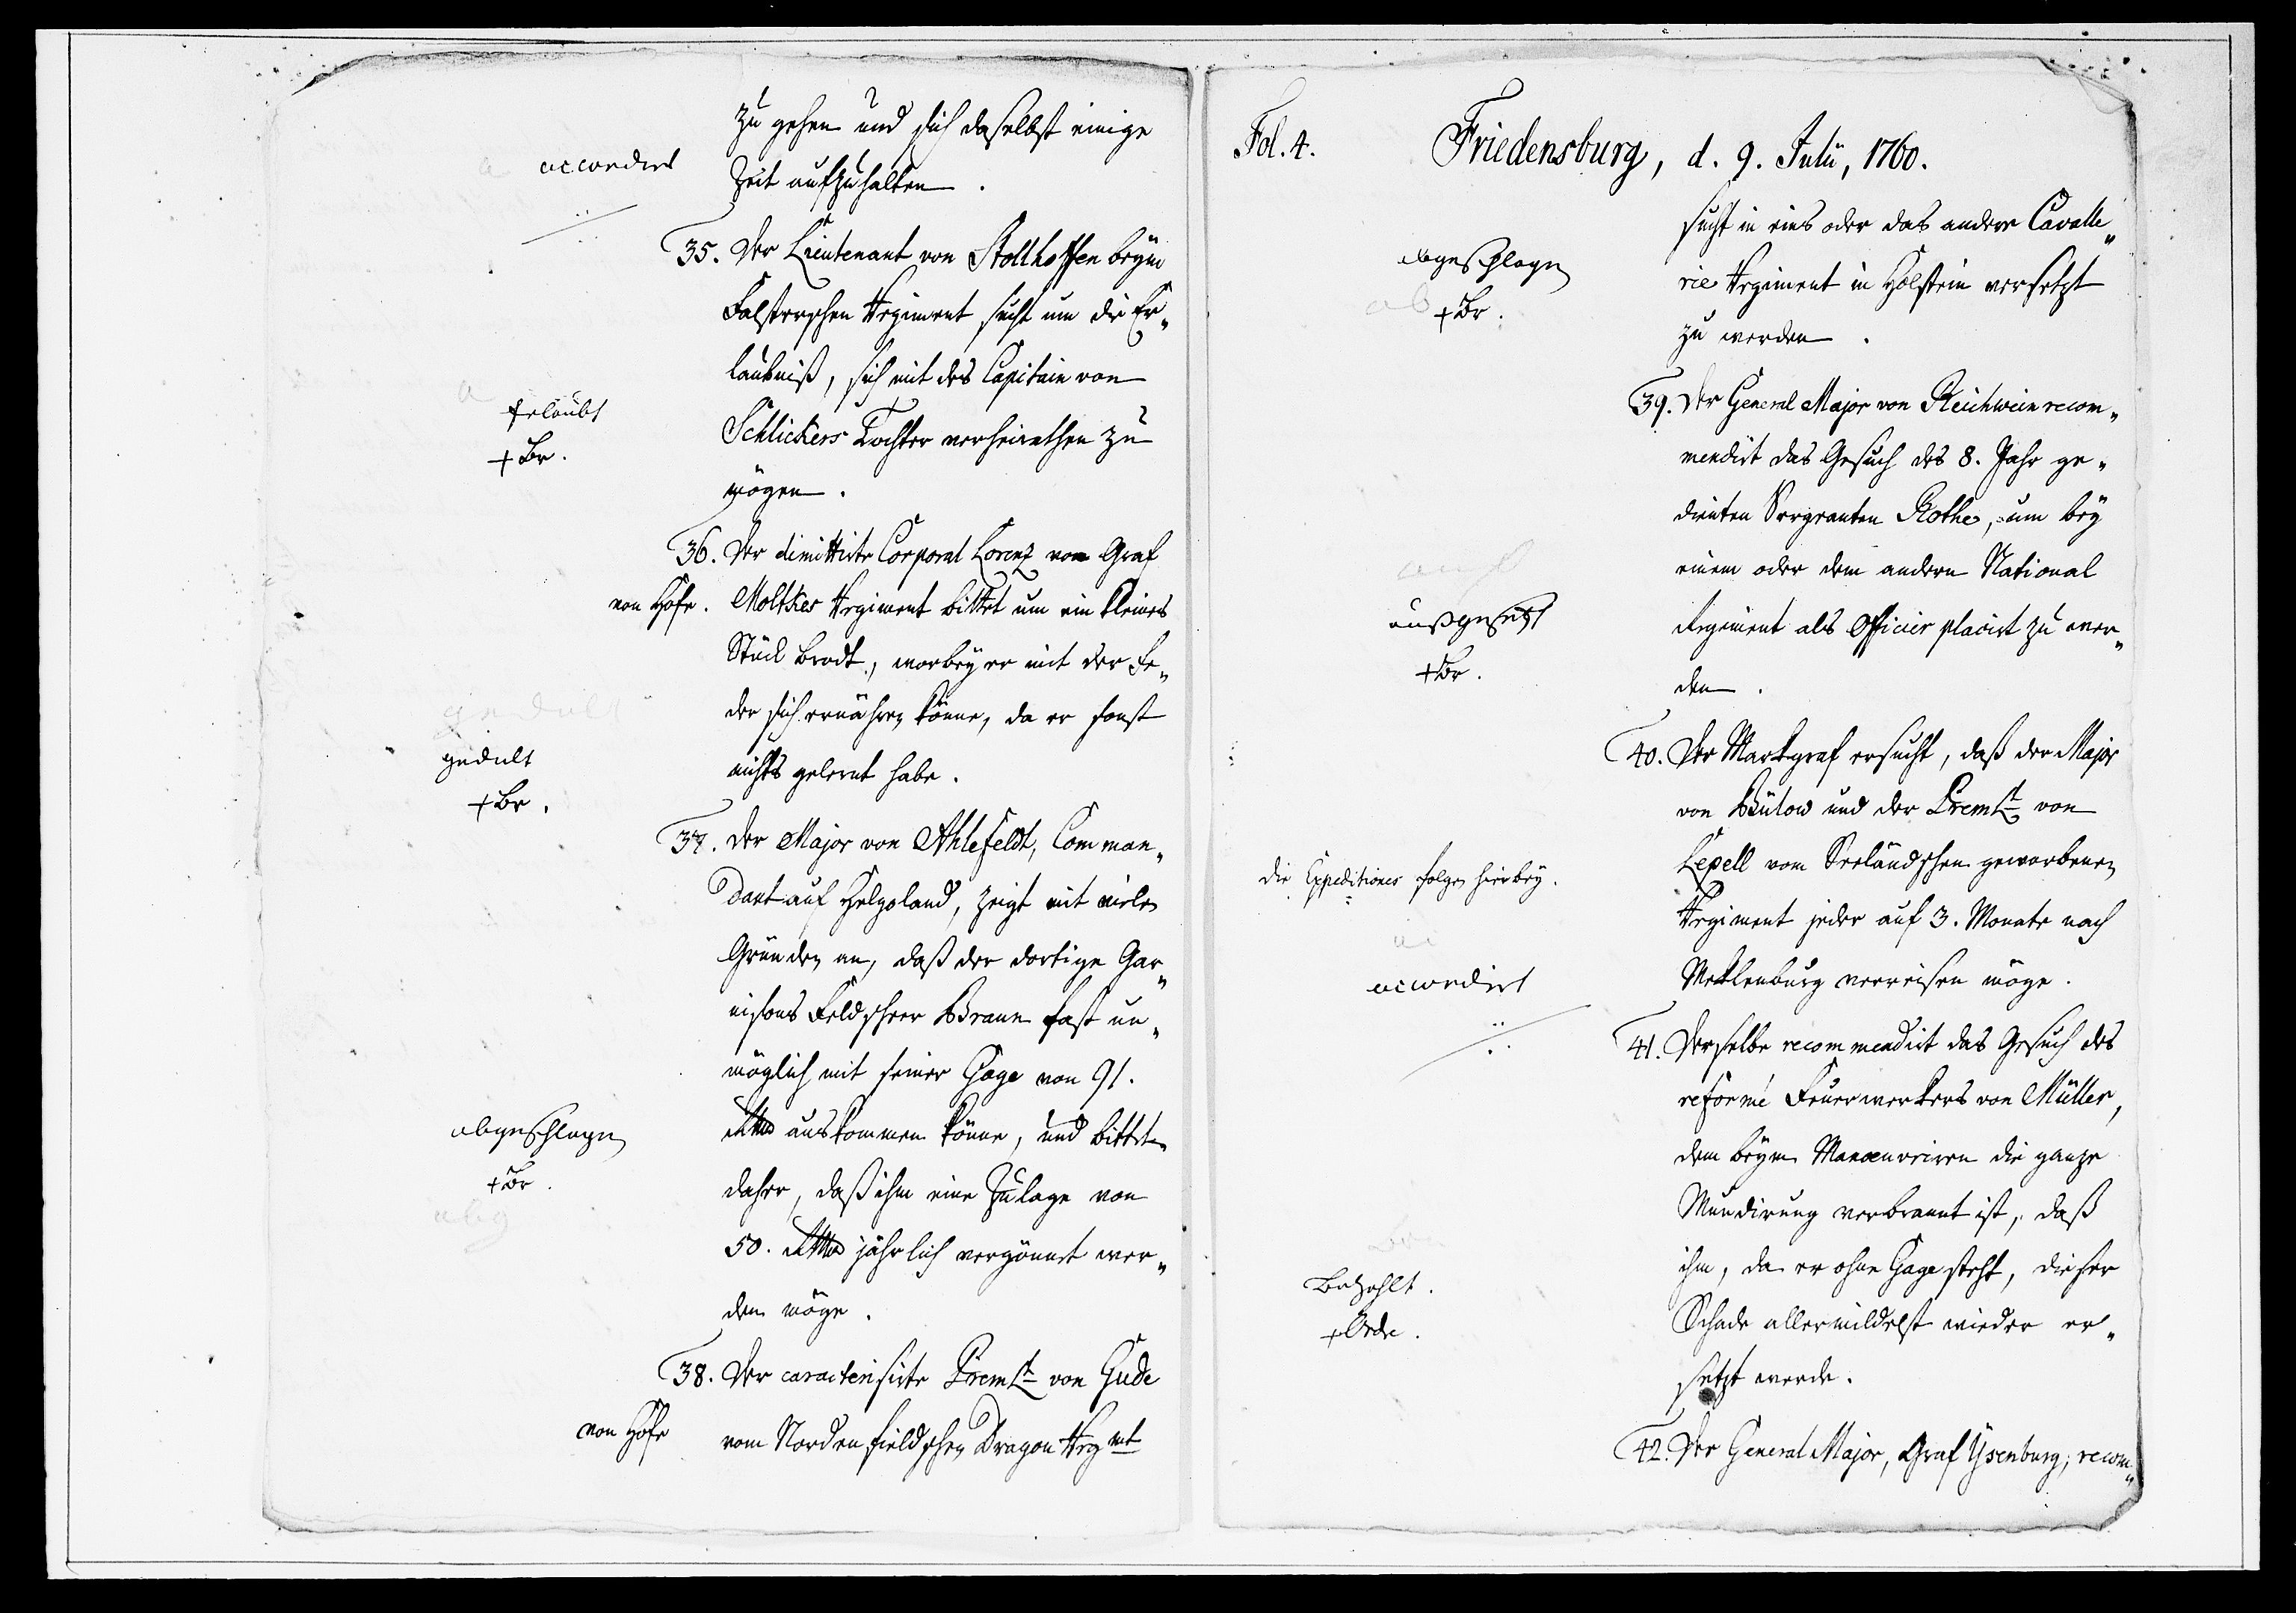 zu gehen und sich daselbst einige
accordirt
Zeit aufzuhalten.
35. Der Lieutenant von Stollhoffen beym
Falsterschen Regiment sucht um die Er„
laubniß, sich mit des Capitain von
Erlaubt
Schlickers Tochter verheirathen zu
+ Br.
mögen.
36. Der dimittirte Corporal Lorenz von Graf
von Hofe. Moltkes Regiment bittet um ein kleines
Stück Brodt, worbey er mit der Fe„
der sich ernähren könne, da er sonst
gedult
nichts gelernt habe.
+ Br.
37. Der Major von Ahlefeldt, Comman„
dant auf Helgoland, zeigt mit vielen
Gründen an, daß der dortige Gar„
nisons Feldscheer Braun fast un„
möglich mit seiner Gage von 91.
abgeschlagen
Rthlr auskommen könne, und bittet
+ Br.
daher, daß ihm eine Zulage von
50. Rthlr jährlich vergönnet wer„
den möge.
38. Der caracterisirte Premlt von Gude
von Hofe
vom Nordenfieldschen Dragon Regmt
Fol. 4.
Friedensburg, d. 9. Julii, 1760.
sucht in eins oder das andere Cavalle„
abgeschlagen
rie Regiment in Holstein versetzt
+ Br.
zu werden.
39. Der General Major von Reichwein recom„
mendirt das Gesuch des 8. Jahr ge„
dienten Sergeanten Rothe, um bey
einem oder dem andern National
außgesetzt
Regiment als Officier placirt zu wer„
+ Br.
den.
40. Der Markgraf ersucht, daß der Major
von Bülow und der Premlt von
Lepell vom Seeländschen geworbenen
die Expeditiones folgen hierbey.
Regiment jeder auf 3. Monate nach
accordirt
Meklenburg verreisen möge.
41. Derselbe recommendirt das Gesuch des
reformé Feuerwerkers von Müller,
dem beym Manoeuvriren die ganze
Mundirung verbrannt ist, daß
ihm, da er ohne Gage steht, dieser
Bezahlt.
Schade allermildest wieder er„
+ Ordr.
setzt werde.
42. Der General Major, Graf Ysenburg, recom„